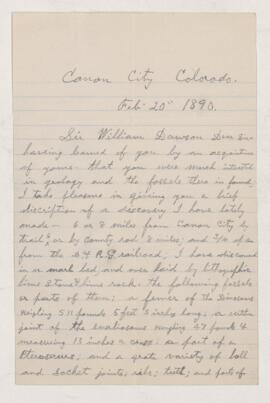 Canon City Colorado.
Feb 20" 1890.
Sir William Dawson Dear Sir
having learned of you by an acquintan
of yours that you were much intrestd
in geology and the fossels there in found,
I take pleasure in giving you a brief
discription of a discovery I have lately
made - 6 or 8 miles from Canon City by
trail, or by County rod 8 miles, and of
from the D & R.G railroad, I have discovered
in a mark bed, and over laid by
lime stone & lime rock. the following fossels
or parts of them; a femer of the Dinosaur
weigting 511 pounds 5 feet 3 inches long; a
joint of the weigting 47 pounds &
measuring 13 inches a cross. a part of a
Pterosaurus; and a grate variety of ball
and socket joints, ribs; teeth; and parts of